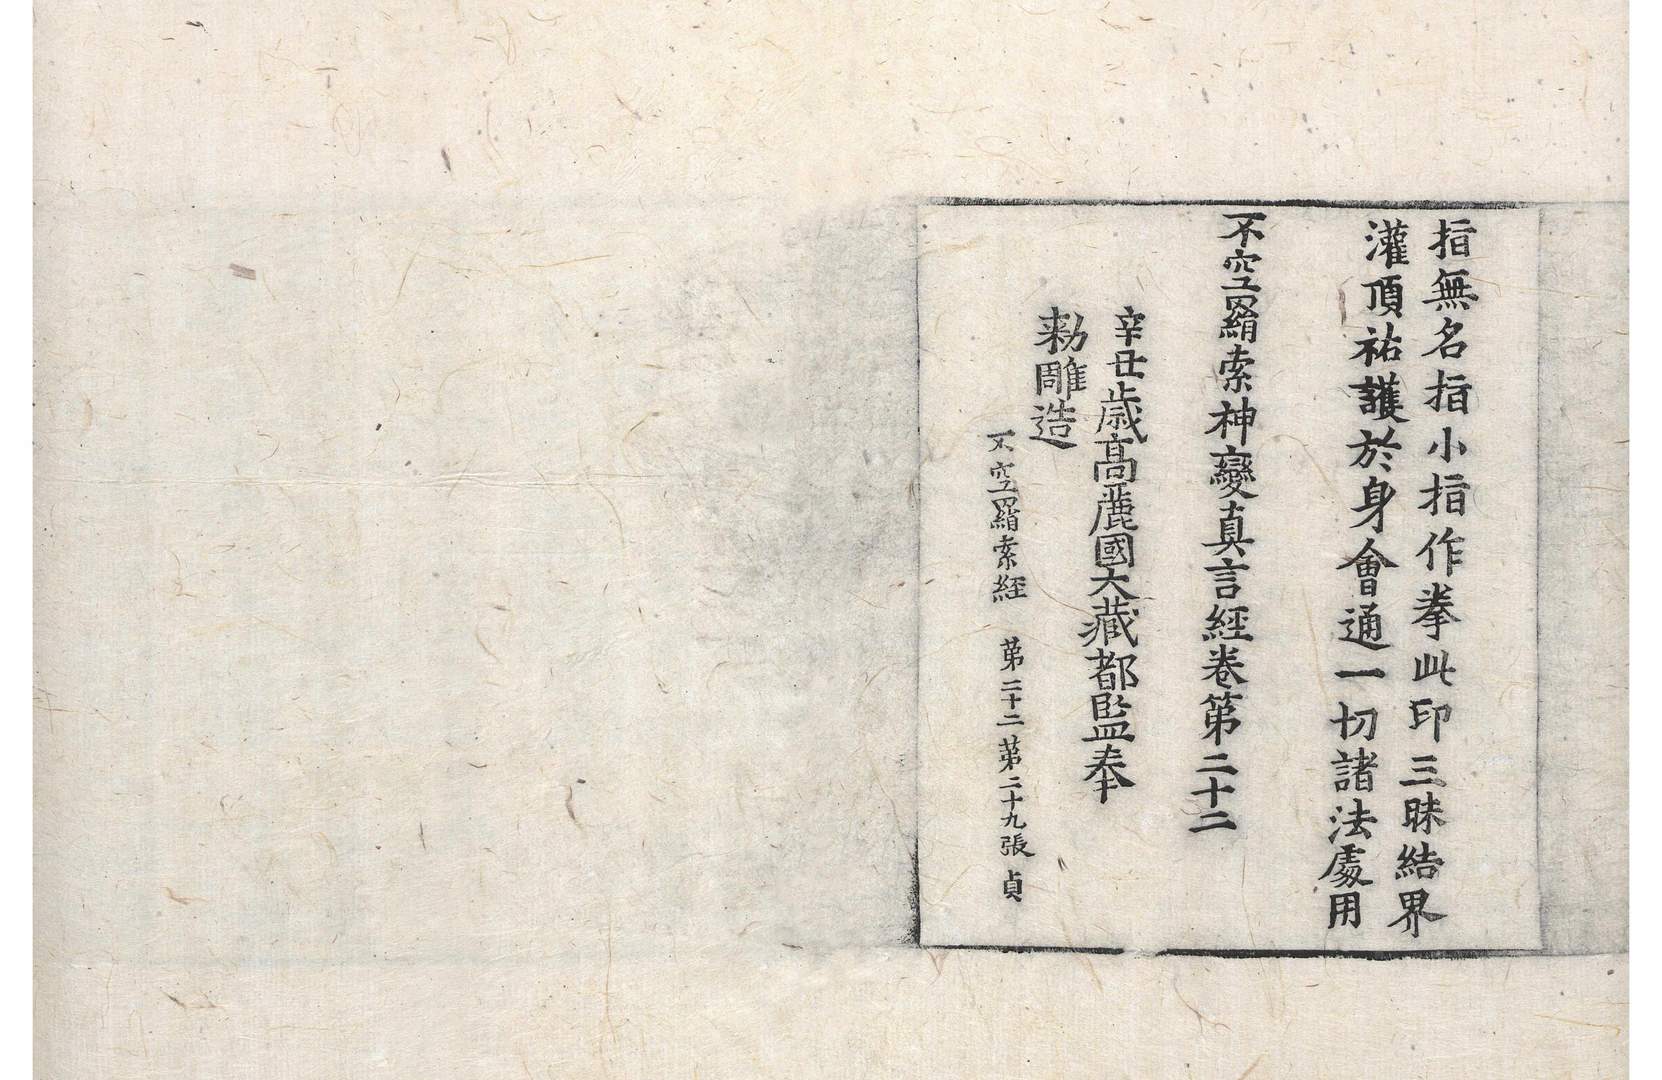 指無名指小指作拳此印三昧結界
灌頂祐護於身會通一切諸法處用
不空羂索神變真言經卷第二十二
辛丑歳高麗國大藏都監奉
勑雕造
不空羂索經 第二十二 第二十九張 貞